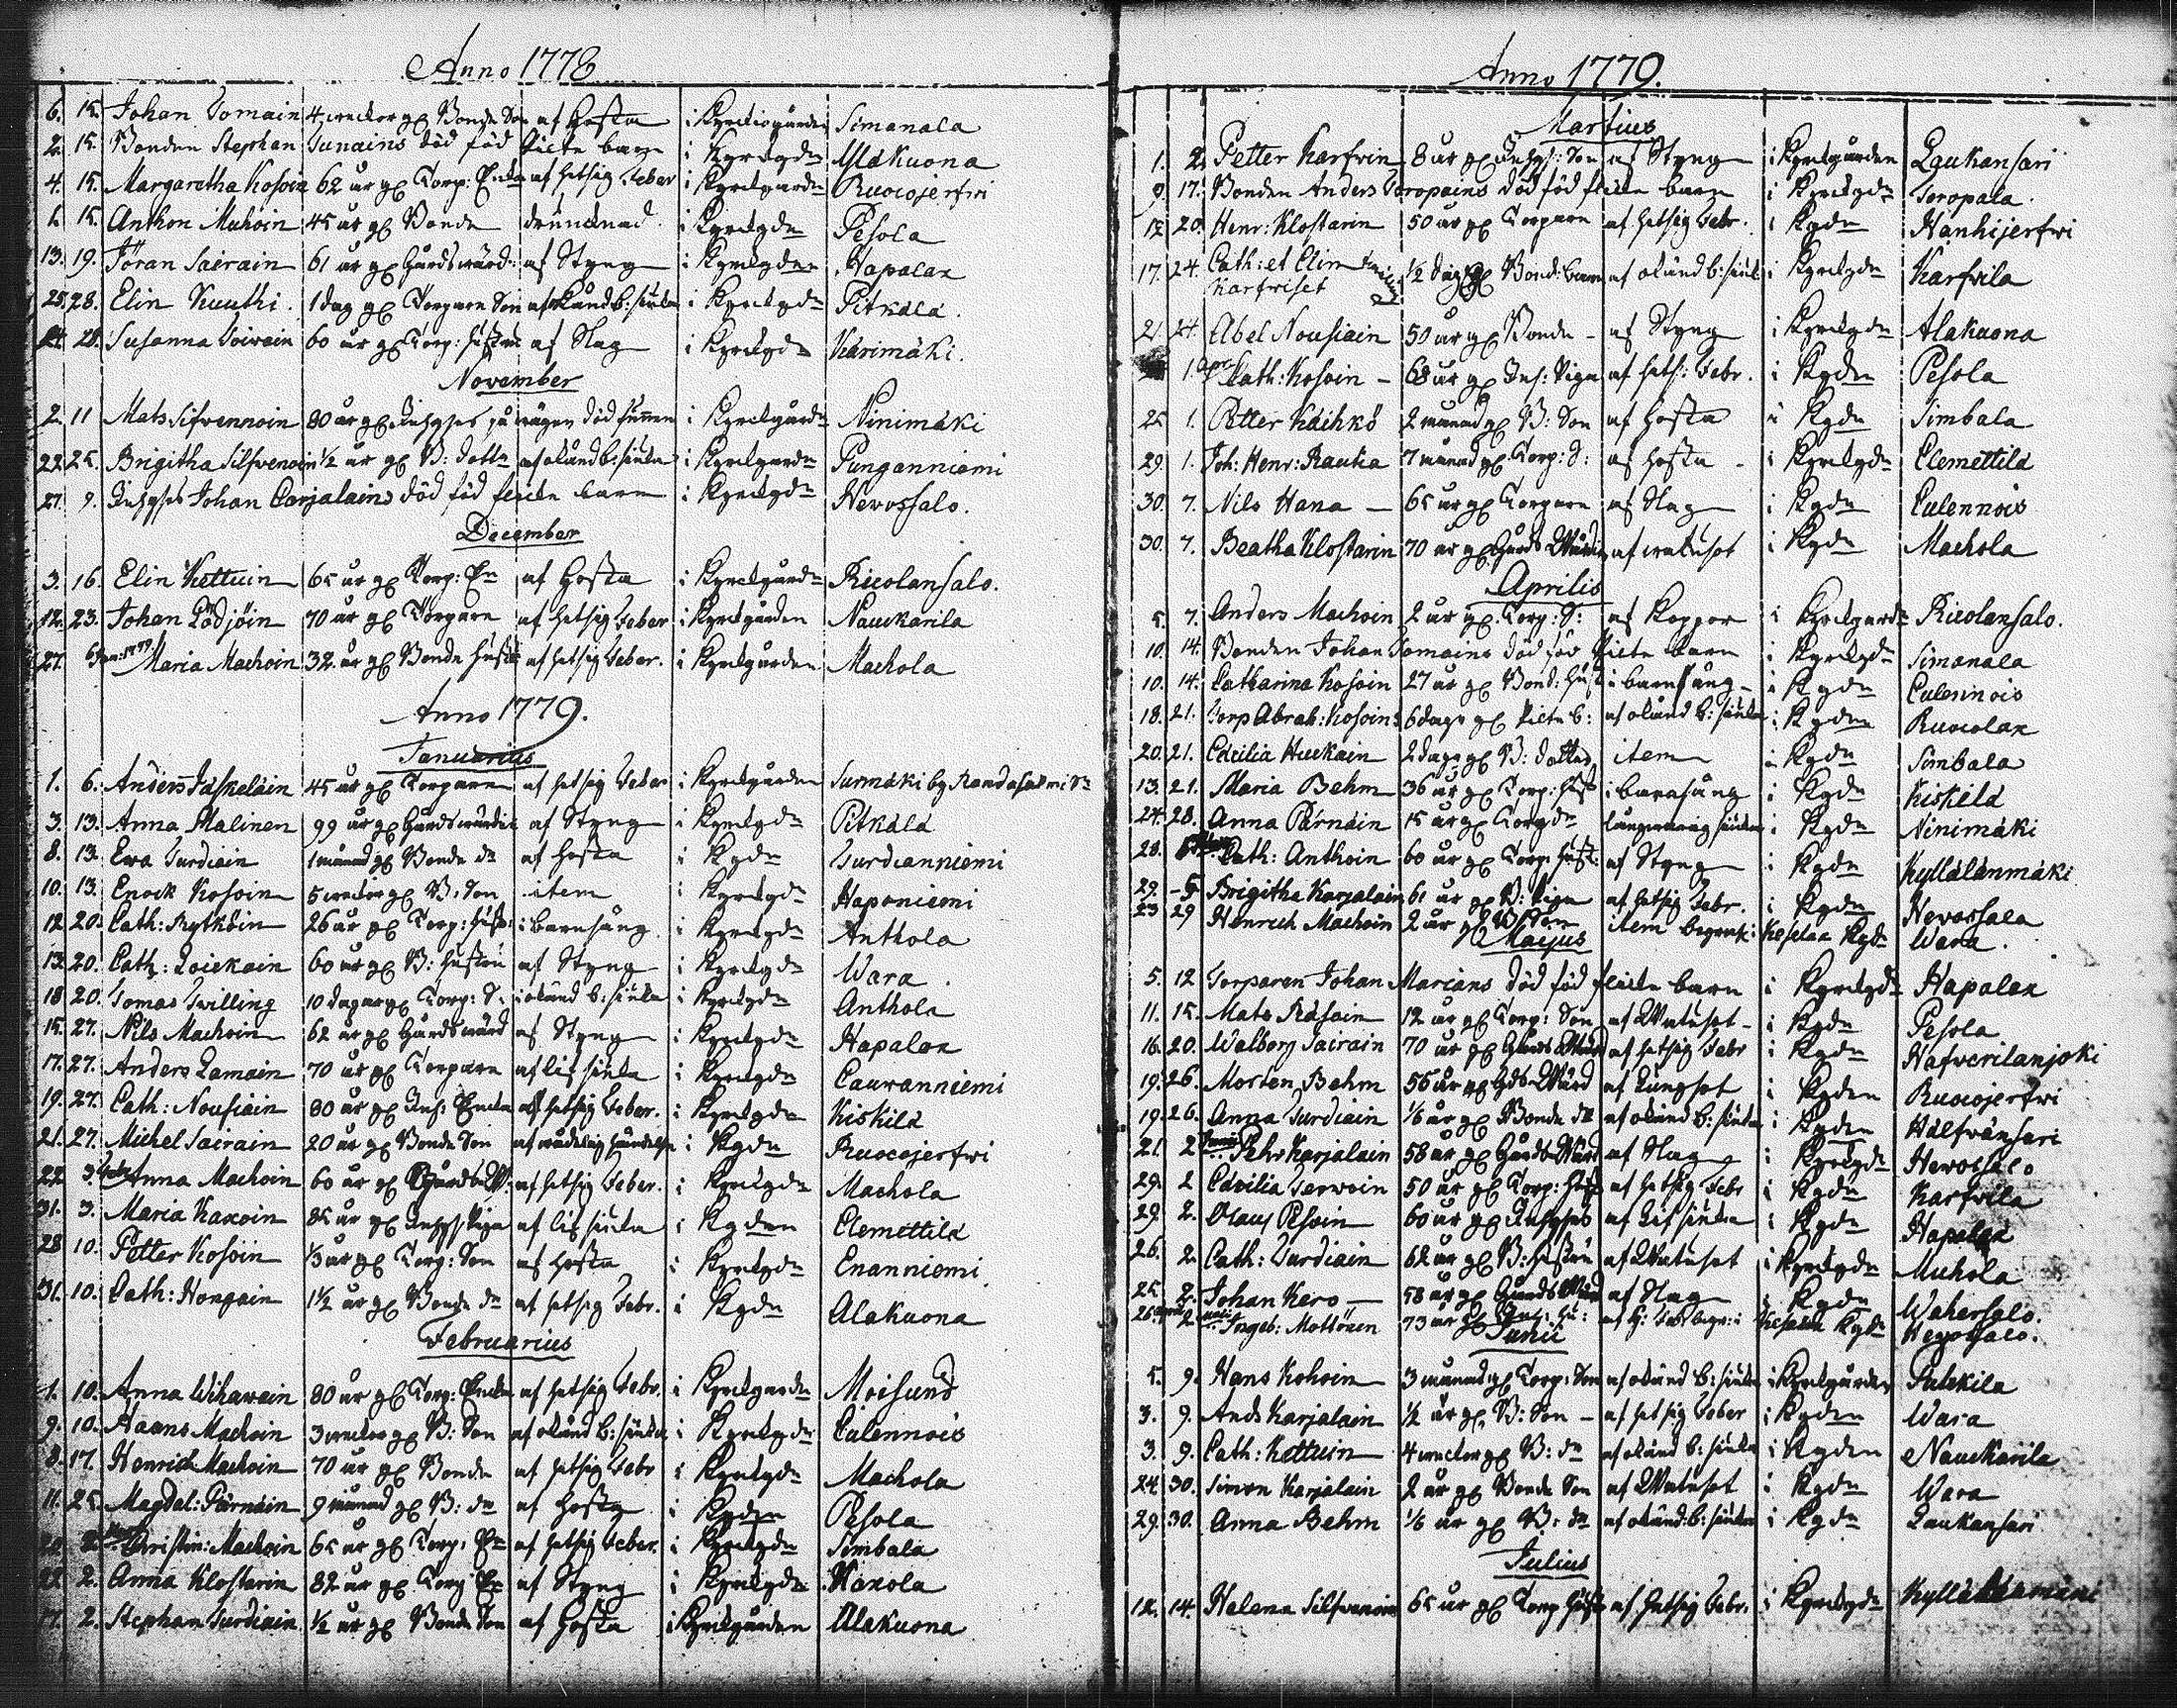 Anno 1778
6. 15. Johan Tomain 4 weckor gl Bonde Son af Hosta i Kyrckiogården Simanala
2. 15. Bonden Stephan Tunains död föd flicke barn i Kyrckgdn Alakuona
4. 15. Margaretha Kosoin 62 år gl Torp: Encka af hetsig Feber i Kyrckgardn Ruocojerfwi
15. Anthon Muhoin 45 år gl Bonde drunknad i Kyrckgdn Pesola
13. 19. Jöran Sairain 61 år gl Gårdswärd: af Styng i Kyrckgdn Hapalax
25. 28. Elin Kuuthi. 1 dag gl Torpare Son af okänd b: siuka i Kyrckgdn Pitkälä.
24. 28. Susanna Toivain 60 år gl Torp: hustru af Slag i Kyrckgdn Kärimäki.
November
2. 11 Mats Silfvennoin 80 år gl Inhyses på wägen död funnen i Kyrckgårdn Ninimäki
22. 25. Brigitha Silfvenoin 1/2 år gl B: dotter af okänd b: siuka i Kyrckgardn Punganniemi
27. 9. Inhyses Johan Corjalains död föd flicke barn i Kyrckgdn Hevossalo.
December
3. 16. Elin Kettuin 65 år gl Torp: En af Hosta i Kyrckgårdn Ricolansalo.
12. 23. Johan Pödjöin 70 år gl Torpare af hetsig Feber i Kyrckgården Nauckarila
27. 6 Jan: 1779. Maria Machoin 32 år gl Bonde hustr af hetsig Feber. i Kyrckgården Machola
Anno 1779.
Januarius
1. 6. Anders Jäskeläin 45 år gl Torpare af hetsig Feber i Kyrckgården Surmäki by Randasalmi Sn
3. 13. Anna Malinen 99 år gl Gårdswärdin af Styng i Kyrckgdn Pitkälä
8. 13. Ewa Turdiain 1 månad gl Bonde dr af Hosta i Kgdn Turdianniemi
10. 13. Enock Kosoin 5 weckor gl B: Son item i Kyrckgdn Haponiemi
12 20. Cath: Rytköin 26 år gl Torp: hust: i barnsäng i Kyrckgdn Anthola
13. 20. Cath: Loickain 60 år gl B: hustru af Styng i Kyrckgdn Wara
18 20. Tomas Twilling 10 dagar gl Torp: S: okänd b: siuka i Kyrckgdn Anthola
15. 27. Nils Machoin 62 år gl Gårdswärd af Styng i Kyrckgdn Hapalax
17. 27. Anders Lamain 70 år gl Torpare af lif siuka i Kyrckgdn Cauranniemi
19. 27. Cath: Nousiain 80 år gl Inh: Encka af hetsig Feber. i Kyrckgdn Kiskilä
21. 27. Michel Sairain 20 år gl Bonde Son af wådelig händelse i Kgdn Ruocojerfwi
22 3. Anna Machoin 60 år gl Gårds W: af hetsig Feber. i Kyrckgdn Machola
31. 3. Maria Kaxoin 85 år gl Inhys Piga af lif siuka i Kgden Clemettilä
28 10. Petter Kosoin 1/3 år gl Torp: Son af Hosta i Kyrckgdn Enanniemi
31. 10. Cath: Hongain 1 1/2 år gl Bonde dr af hetsig Febr. i Kgdn Alakuona
Februarius
1. 10. Anna Wihawain 80 år gl Torp: Encka af hetsig Febr. i Kyrckgardn Moisund
9. 10. Haans Machoin 3 weckor gl B: Son af okänd b: siuka i Kyrckgdn Culennois
8. 17. Henrich Machoin 70 år gl Bonde af hetsig Febr i Kyrckgdn Machola
11. 25. Magdal: Pärnäin 9 månad gl B: dr af Hosta i Kgden Pesola
Christin: Machoin 65 år gl Torp: En af hetsig Feber. i Kyrckgdn Simbala
22 2. Anna Klostarin 82 år gl Torp En af Styng i Kyrckgdn Haxola
17. 2. Stephan Turdiain 1/2 år gl Bonde Son af Hosta i Kyrckgården Alakuona
Anno 1779.
Martius
1. 2. Petter Karfvin 8 år gl Inhys: Son af Styng i Kyrckgården Laukansari
9. 17. Bonden Anders Toropains död föd flicke barn i Kyrckgdn Toropala.
12 20. Henr: Klostarin 50 år gl Torpare af hetsig Febr. i Kgdn Hanhijerfwi
17. 24. Cath: et Elin Karfwiset 1/2 dag gl Bond: barn af okänd b: siuk i Kyrckgdn Karfvila
21. 24. Abel Nousiain 50 år gl Bonde - af Styng i Kyrckgdn Alakuona
1. Apr. Cath: Kosoin - 68 år gl Inh: Piga af hets: Febr. i Kgdn Pesola
25 1. Petter Käihkö 2 månad gl B: Son af Hosta i Kgdn Simbala
29. 1. Joh: Henr: Rautia 7 månad gl Torp: S: af Hosta - i Kyrckgdn Clemettilä
30. 7. Nils Hana - 65 år gl Torpare af Slag i Kgdn Culennois
30. 7. Beatha Klostarin 70 år gl Gårds Wärdin af watusot i Kgdn Machola
Aprilis
5. 7. Anders Machoin 2 år gl Torp: S: af Koppor i Kyrckgardn Ricolansalo.
10. 14. Bonden Johan Tomains död föd flicke barn i Kyrckgdn Simanala
10. 14. Catharina Kosoin 27 år gl Bond: hust i barnsäng - i Kgdn Culennois
18. 21. Torp Abrah: Kosoins 6 dags gl flicke b: af okänd b: siuka i Kgdn Ruocolax
20. 21. Cecilia Huckain 2 dags gl B: dotter item i Kgdn Simbala
13. 21. Maria Behm 36 år gl Torp: hust i barnsäng i Kgdn Kiskilä
24. 28. Anna Pärnäin 15 år gl Torp dr långwarig siuka i Kgdn Ninimäki
28. Cath: Anthoin 60 år gl Torp: hust: af Styng i Kgdn Kylläländmäki
29. - 5 Brigitha Karjalain 61 år gl B: Piga af hetsig Febr. i Kgdn Hevossala
23 29 Henrich Machoin 2 år gl B Son item begraf: i Kesälax Kgdn Wara.
Maijus
5. 12 Torparen Johan Marians död föd flicke barn i Kyrckgdn Hapalax
11. 15. Mats Räsain 12 år gl Torp: Son af Watusot - i Kgdn Pesola
16. 20. Walborg Sairain 70 år gl Gårds Wärd af hetsig Febr i Kgdn Hafverilanjoki
19. 26. Morten Behm 56 år gl Gds Wärd af Lungsot i Kgden Ruocojerfwi
19. 26. Anna Turdiain 1/6 år gl Bonde dr af okänd b: siuka i Kgden Hälfvänsari
21. 2 Junii Pehr Karjalain 58 år gl Gårds Wärd af Slag i Kyrckgdn Hevossalo
29. 2 Cecilia Terwoin 50 år gl Torp: hust af hetsig Febr i Kgdn Karfvila
29 2. Olaus Pesoin 60 år gl Inhyses af Lif siuka i Kgdn Hapalax
26. 2. Cath: Turdiain 62 år gl B: hustru af Watusot i Kyrckgdn Muhola
25. 2. Johan Kero - 58 år gl Gårds Wärd af Slag i Kgdn Wahersalo.
26. 2. Ingeb: Mottönen 73 år gl Inh: hu: af H: Feb begr: i Kesälax Kgdn Hevossalo.
Junii
5. 9. Hans Kohoin 3 månad gl Torp: Son af okänd b: siuka i Kyrckgården Putkila
3. 9. Ands Karjalain 1/2 år gl B: Son - af hetsig Feber i Kgden Wara
3. 9. Cath: Kettuin 4 weckor gl B: dr af okänd b: siuka i Kgden Nauckarila
24 30. Simon Karjalain 2 år gl Bonde Son af Watusot i Kgdn Wara
29. 30. Anna Behm 1/6 år gl B: dr af okänd: b: siuka i Kgdn Laukansari
Julius
12. 14. Helena Silfvenoin 65 år gl Torp hustr af hetsig Febr. i Kyrckgdn